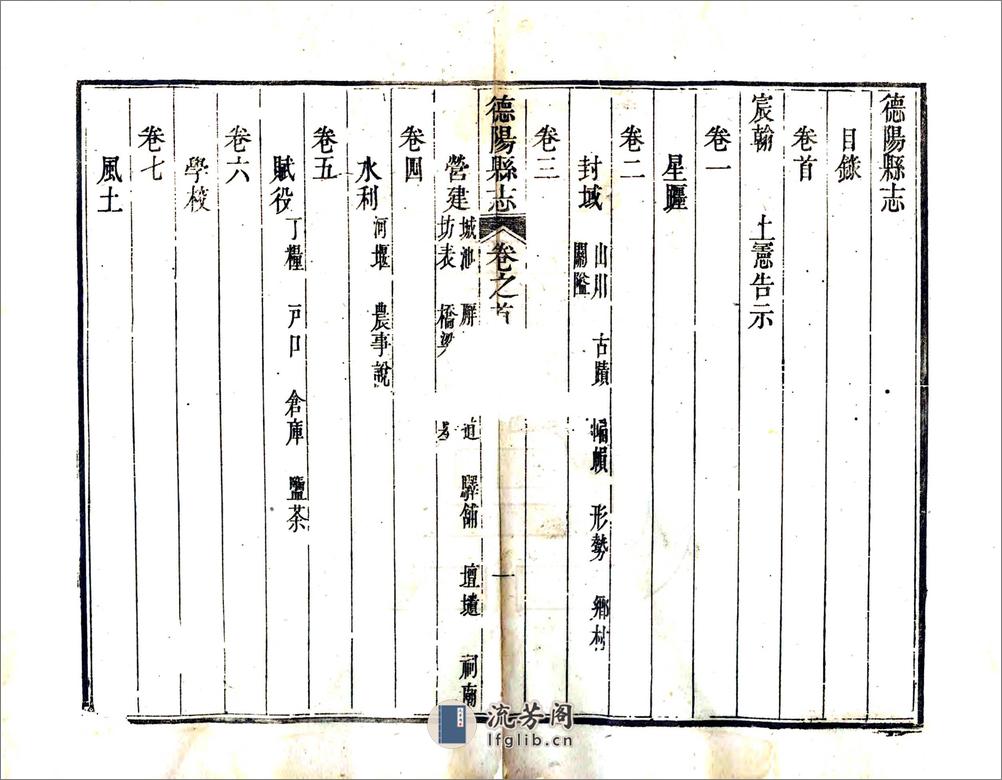 德陽縣志
目錄
卷首
宸翰 土憲告示
卷一
星躔
卷二
封域 山川 古蹟 幅𢄙 形勢 鄉村
關隘
卷三
德陽縣志 卷之首 一
營建 城池 廨 道 驛舖 壇壝 祠廟
坊表 橋梁
卷四
水利 河堰 農事說
卷五
賦役 丁糧 戸口 倉庫 鹽茶
卷六
學校
卷七
風土
流芳阁
lfglib.cn